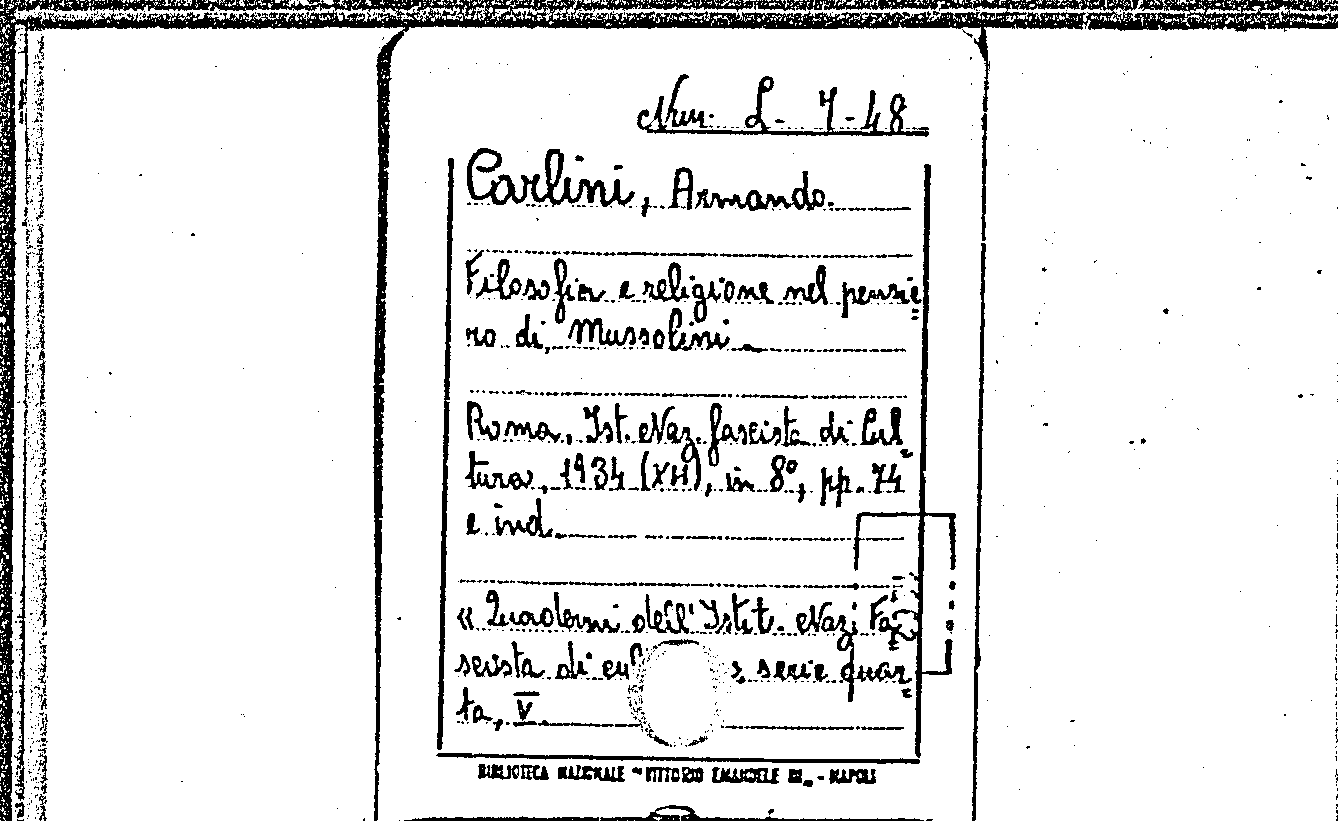 Num. L- 7-48
Carlini, Armando.
Filosofia e religione nel pensie=
ro di Mussolini.
Roma, Ist. Naz. fascista di Cul=
tura, 1934 (XII), in 8º, pp. 74
e ind.
« Quaderni dell'Istit. Naz. Fa=
scista di cul », serie quar=
ta, V.
BIBLIOTECA NAZIONALE "VITTORIO EMANUELE III" - NAPOLI